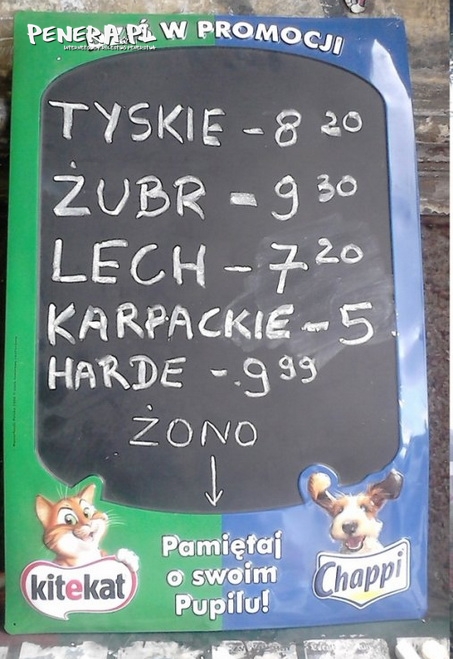 PENERA.PL W PROMOCJI
TYSKIE - 8 20
ŻUBR - 9 30
LECH - 7 20
KARPACKIE - 5.
HARDE - 9 99
ŻONO
↓
Pamiętaj
o swoim
Pupilu!
kitekat
Chappi